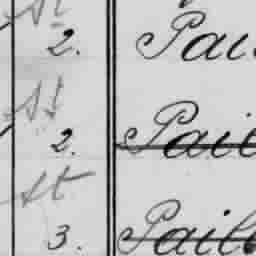 St
2. Pai
St
2. Pail
St
3. Pail